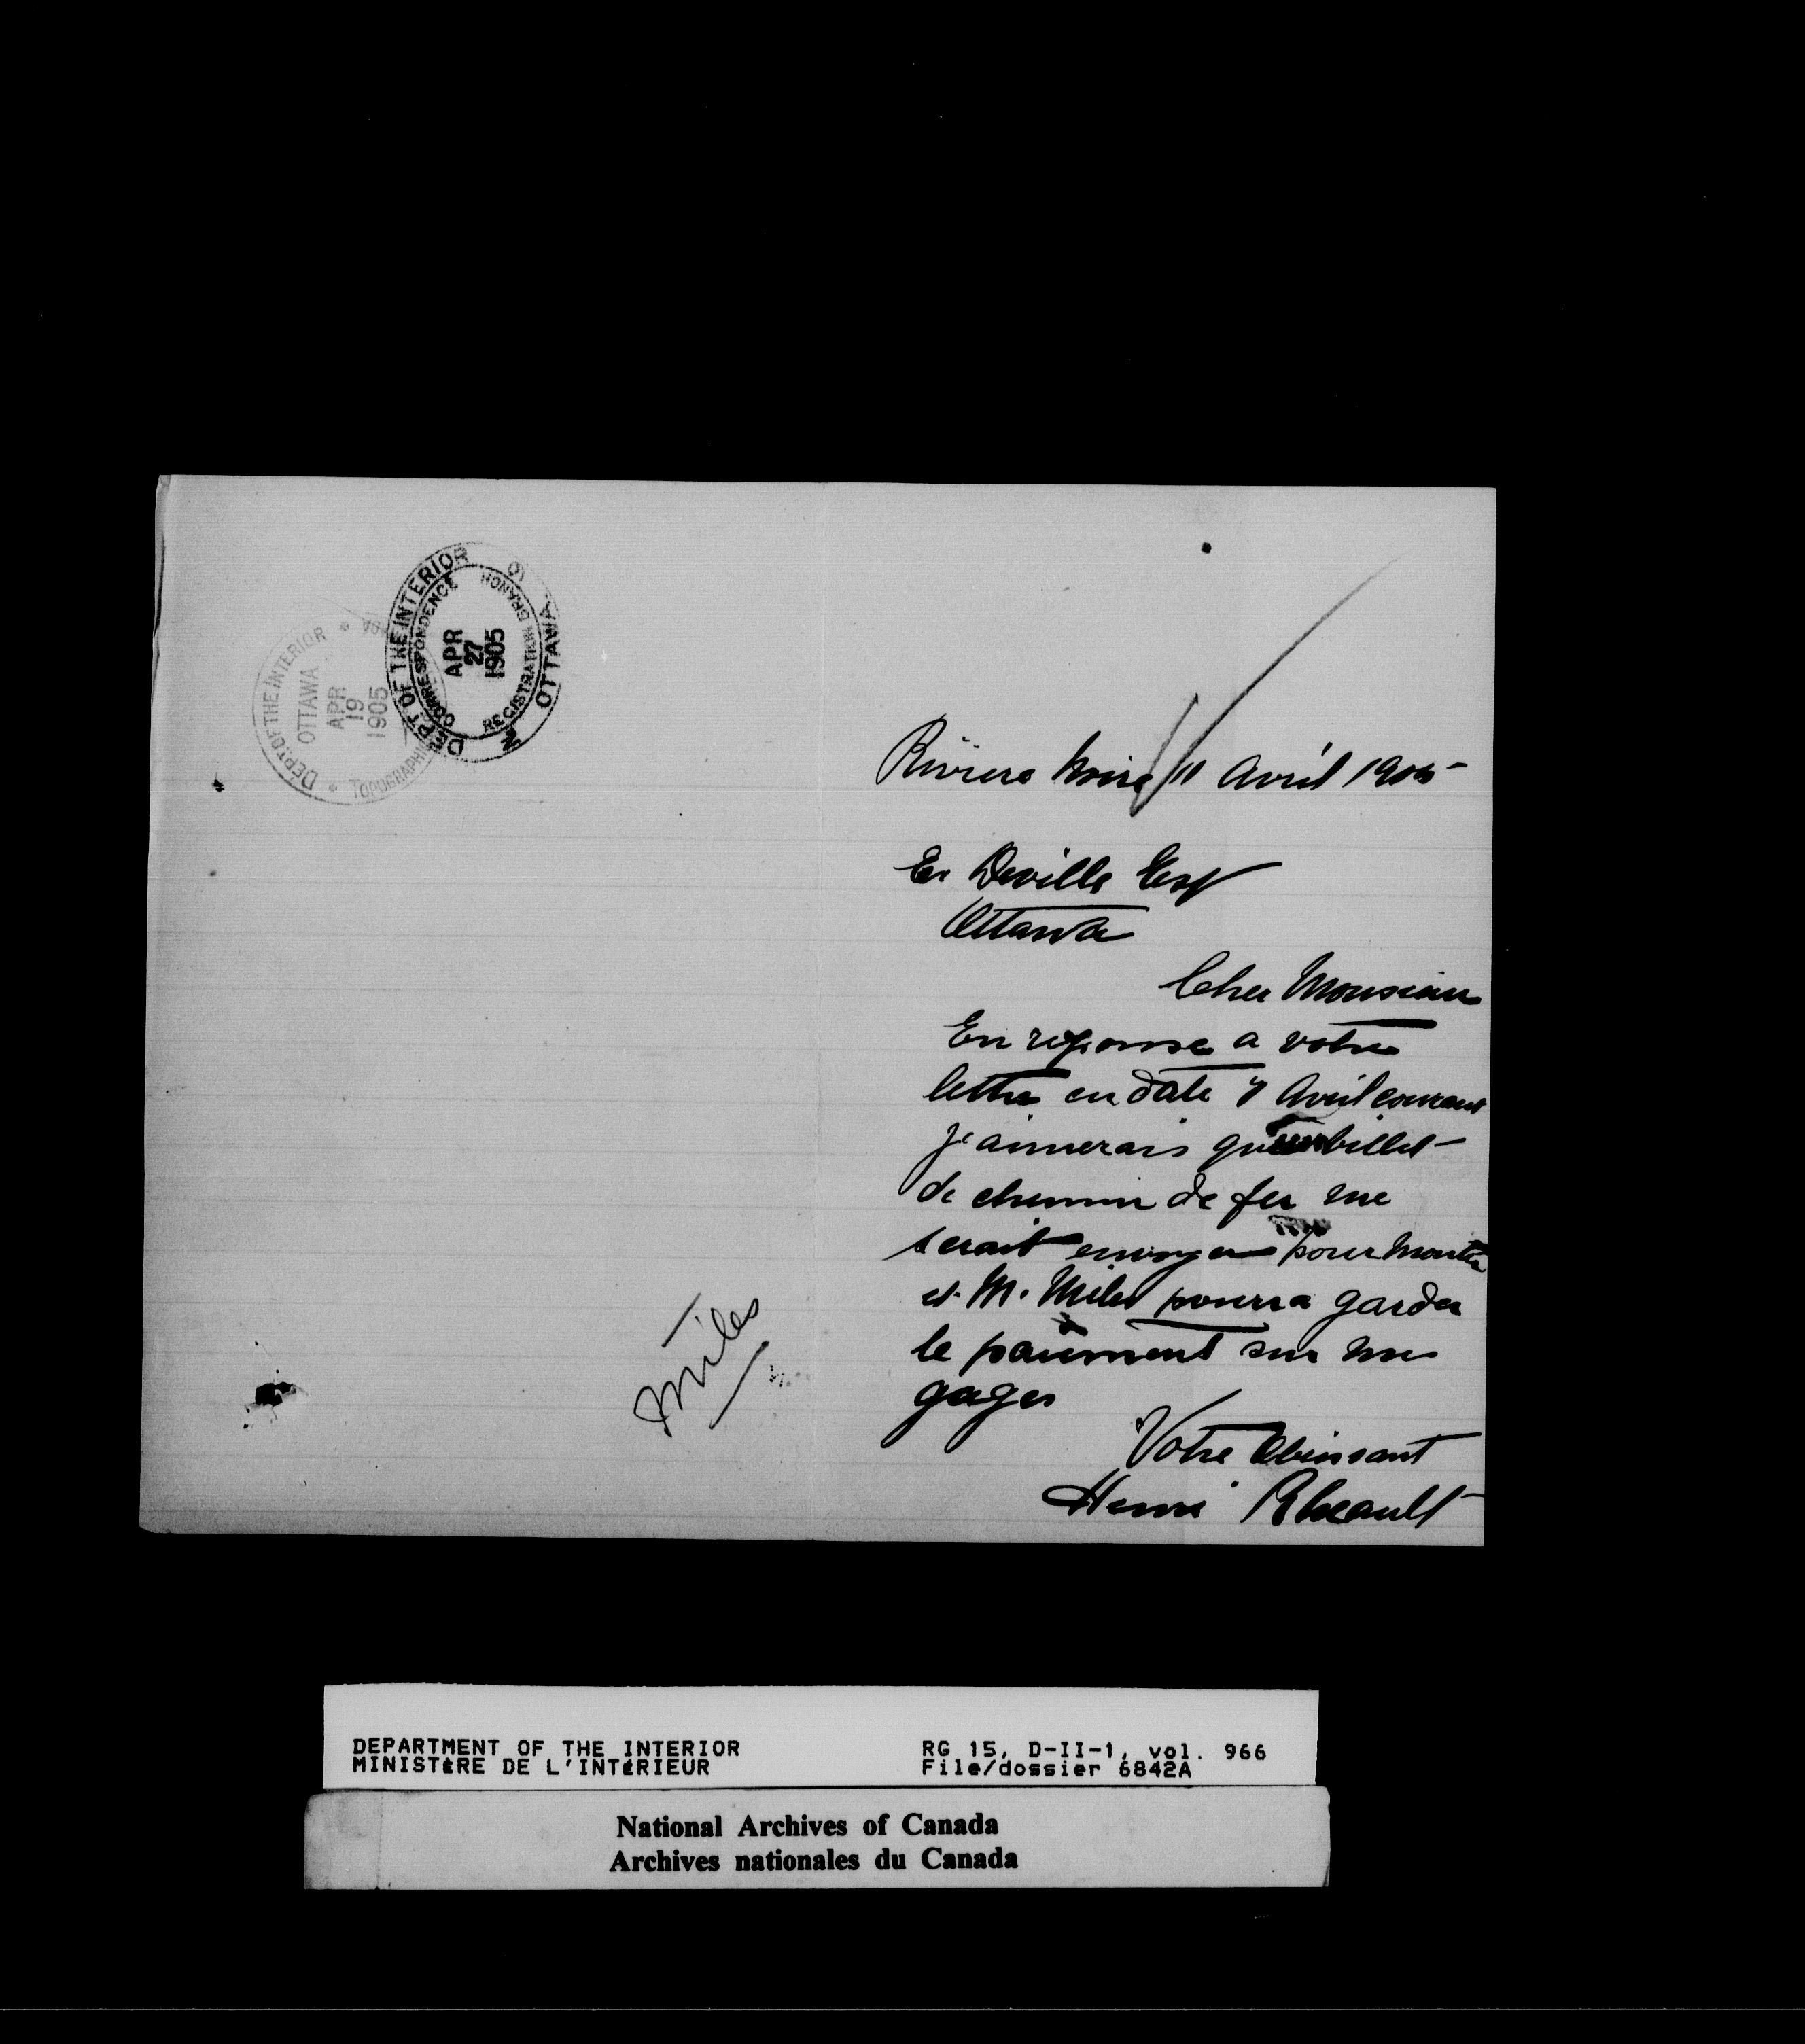 DEPT OF THE INTERIOR
OTTAWA
APR
19
1905
TOPOGRAPHI
DEPT OF THE INTERIOR
CORRESPONDENCE
APR
27
1905
REGISTRATION BRANCH
OTTAWA
Riviere Noire 11 Avril 1905
E. Deville Esq
Ottawa
Cher Monsieur
En reponse a votre
lettre en date 7 Avril courant
j'aimerais qu'un billet
de chemin de fer me
serait envoyer pour monter
et M. Miles pourra garder
le paiement sur mes
gages
Votre Obeissant
Henri Rheault
Miles
DEPARTMENT OF THE INTERIOR
MINISTÈRE DE L'INTÉRIEUR
RG 15, D-II-1, vol. 966
File/dossier 6842A
National Archives of Canada
Archives nationales du Canada